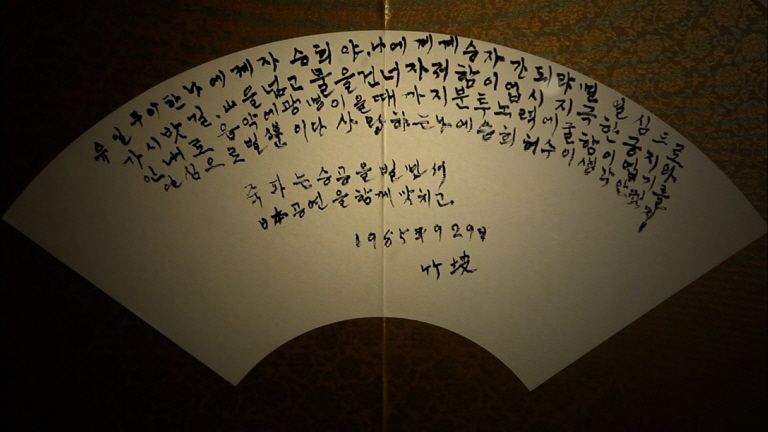 유일무이한 나에 제자 승희야. 나에게 게승자 일심으로
가시밧길, 山을넘고 물을건너 자저함이 업시 지극한 긍지와
인내로 음악에 광명이 을때 가지 분투노력에 굴함이 업기를
으로 빌 뿐 이다 사랑하는 나에 승희 허수이 생각 안켓지
죽파는 승공을 빌면서
日本공연을 함께 맛치고.
1985年 9 29日
竹坡